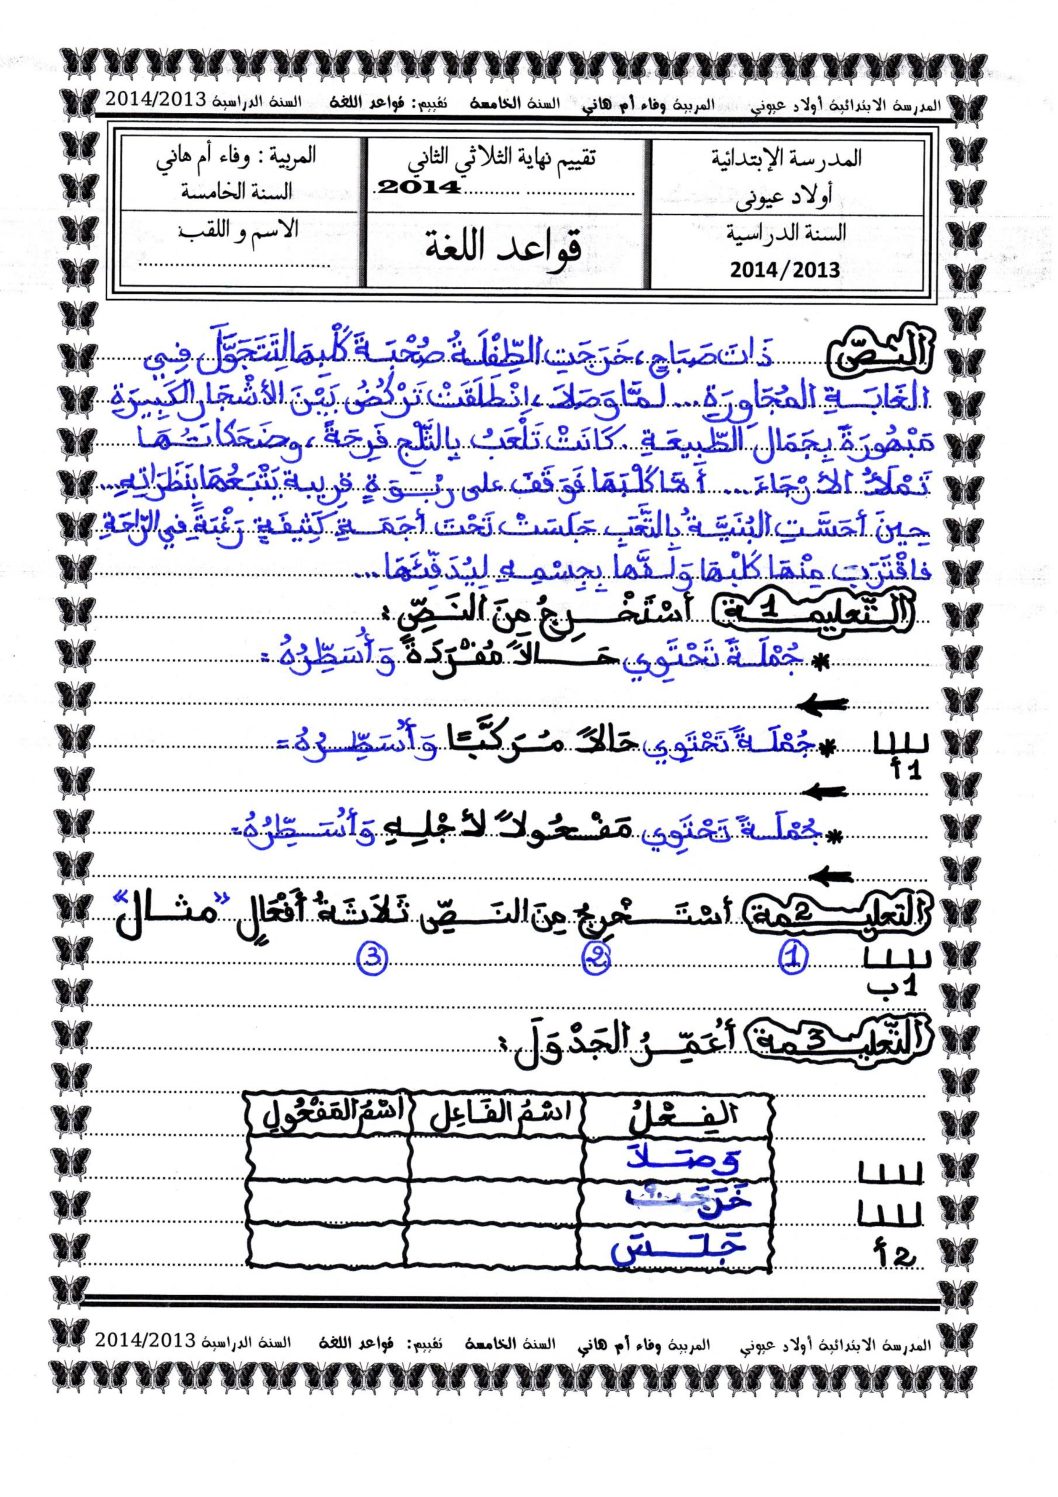 المدرسة الابتدائية أولاد عيوني المربية وفاء أم هاني السنة الخامسة تقييم: قواعد اللغة السنة الدراسية 2014/2013
المدرسة الإبتدائية
أولاد عيوني
السنة الدراسية
2014/2013
تقييم نهاية الثلاثي الثاني
2014
قواعد اللغة
المربية : وفاء أم هاني
السنة الخامسة
الاسم و اللقب:
النَّصّ
ذَاتَ صَبَاحٍ، خَرَجَتِ الطِّفْلَةُ صُحْبَةَ كَلْبِهَا لِتَتَجَوَّلَ فِي
الغَابَةِ المُجَاوِرَةِ... لمَّا وَصَلَا، اِنْطَلَقَتْ تَرْكُضُ بَيْنَ الأشْجَارِ الكَبِيرَةِ
مَبْهُورَةً بِجَمَالِ الطَّبِيعَةِ. كَانَتْ تَلْعَبُ بِالثَّلْجِ فَرِحَةً، وضَحَكَاتُهَا
تَمْلَأُ الأرْجَاءَ... أمَّا كَلْبُهَا فَوَقَفَ على رَبْوَةٍ قريبةٍ يَتْبَعُهَا بِنَظَرَاتِهِ...
حِينَ أحَسَّتِ البُنَيَّةُ بِالتَّعَبِ جَلَسَتْ تَحْتَ أجَمَةٍ كَثِيفَةٍ رَغْبَةً فِي الرَّاحَةِ
فاقْتَرَبَ مِنْهَا كَلْبُهَا وَلَفَّهَا بِجِسْمِهِ لِيُدَفِّئَهَا...
التَّعليمـ1ـة أسْتَخْرِجُ مِنَ النَصِّ:
* جُمْلَةً تَحْتَوِي حَالاً مُفْرَدَةً وَأُسَطِّرُهُ =
* جُمْلَةً تَحْتَوِي حَالاً مُرَكَّبًا وَأُسَطِّرُهُ =
1أ
* جُمْلَةً تَحْتَوِي مَفْعُولاً لأجْلِهِ وَأُسَطِّرُهُ =
التعليـ2ـمة أسْتَخْرِجُ مِنَ النَصِّ ثَلَاثَةَ أفْعَالٍ "مثال"
1 2 3
1ب
التَّعليـ3ـمة أُعَمِّرُ الجَدْوَلَ:
الفِعْلُ اسْمُ الفَاعِلِ اسْمُ المَفْعُولِ
وَصَلَا
خَرَجَتْ
جَلَسَ
2أ
المدرسة الابتدائية أولاد عيوني المربية وفاء أم هاني السنة الخامسة تقييم: قواعد اللغة السنة الدراسية 2014/2013